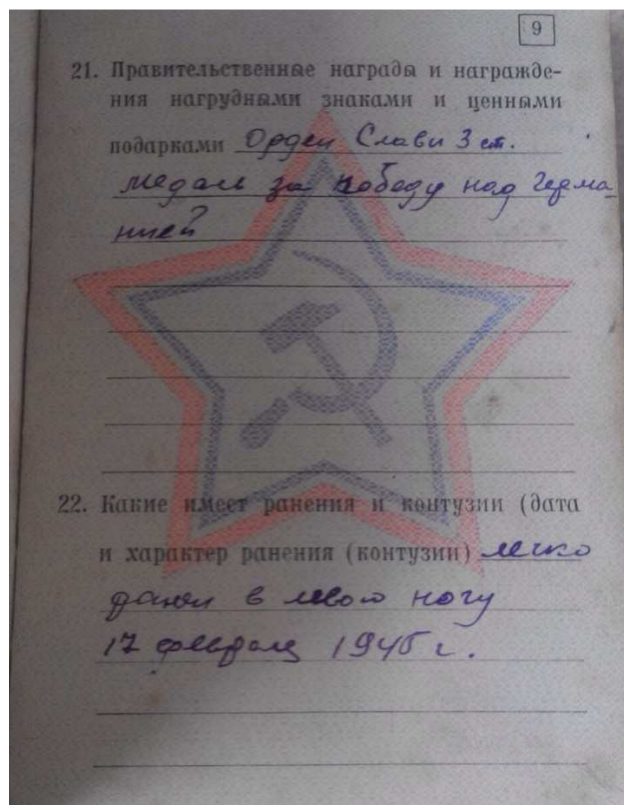 9
21. Правительственные награды и награжде-
ния нагрудными знаками и ценными
подарками Орден Славы 3 ст.
медаль за победу над Герма
нией
22. Какие имеет ранения и контузии (дата
и характер ранения (контузии) легко
ранен в левою ногу
17 февраля 1945 г.